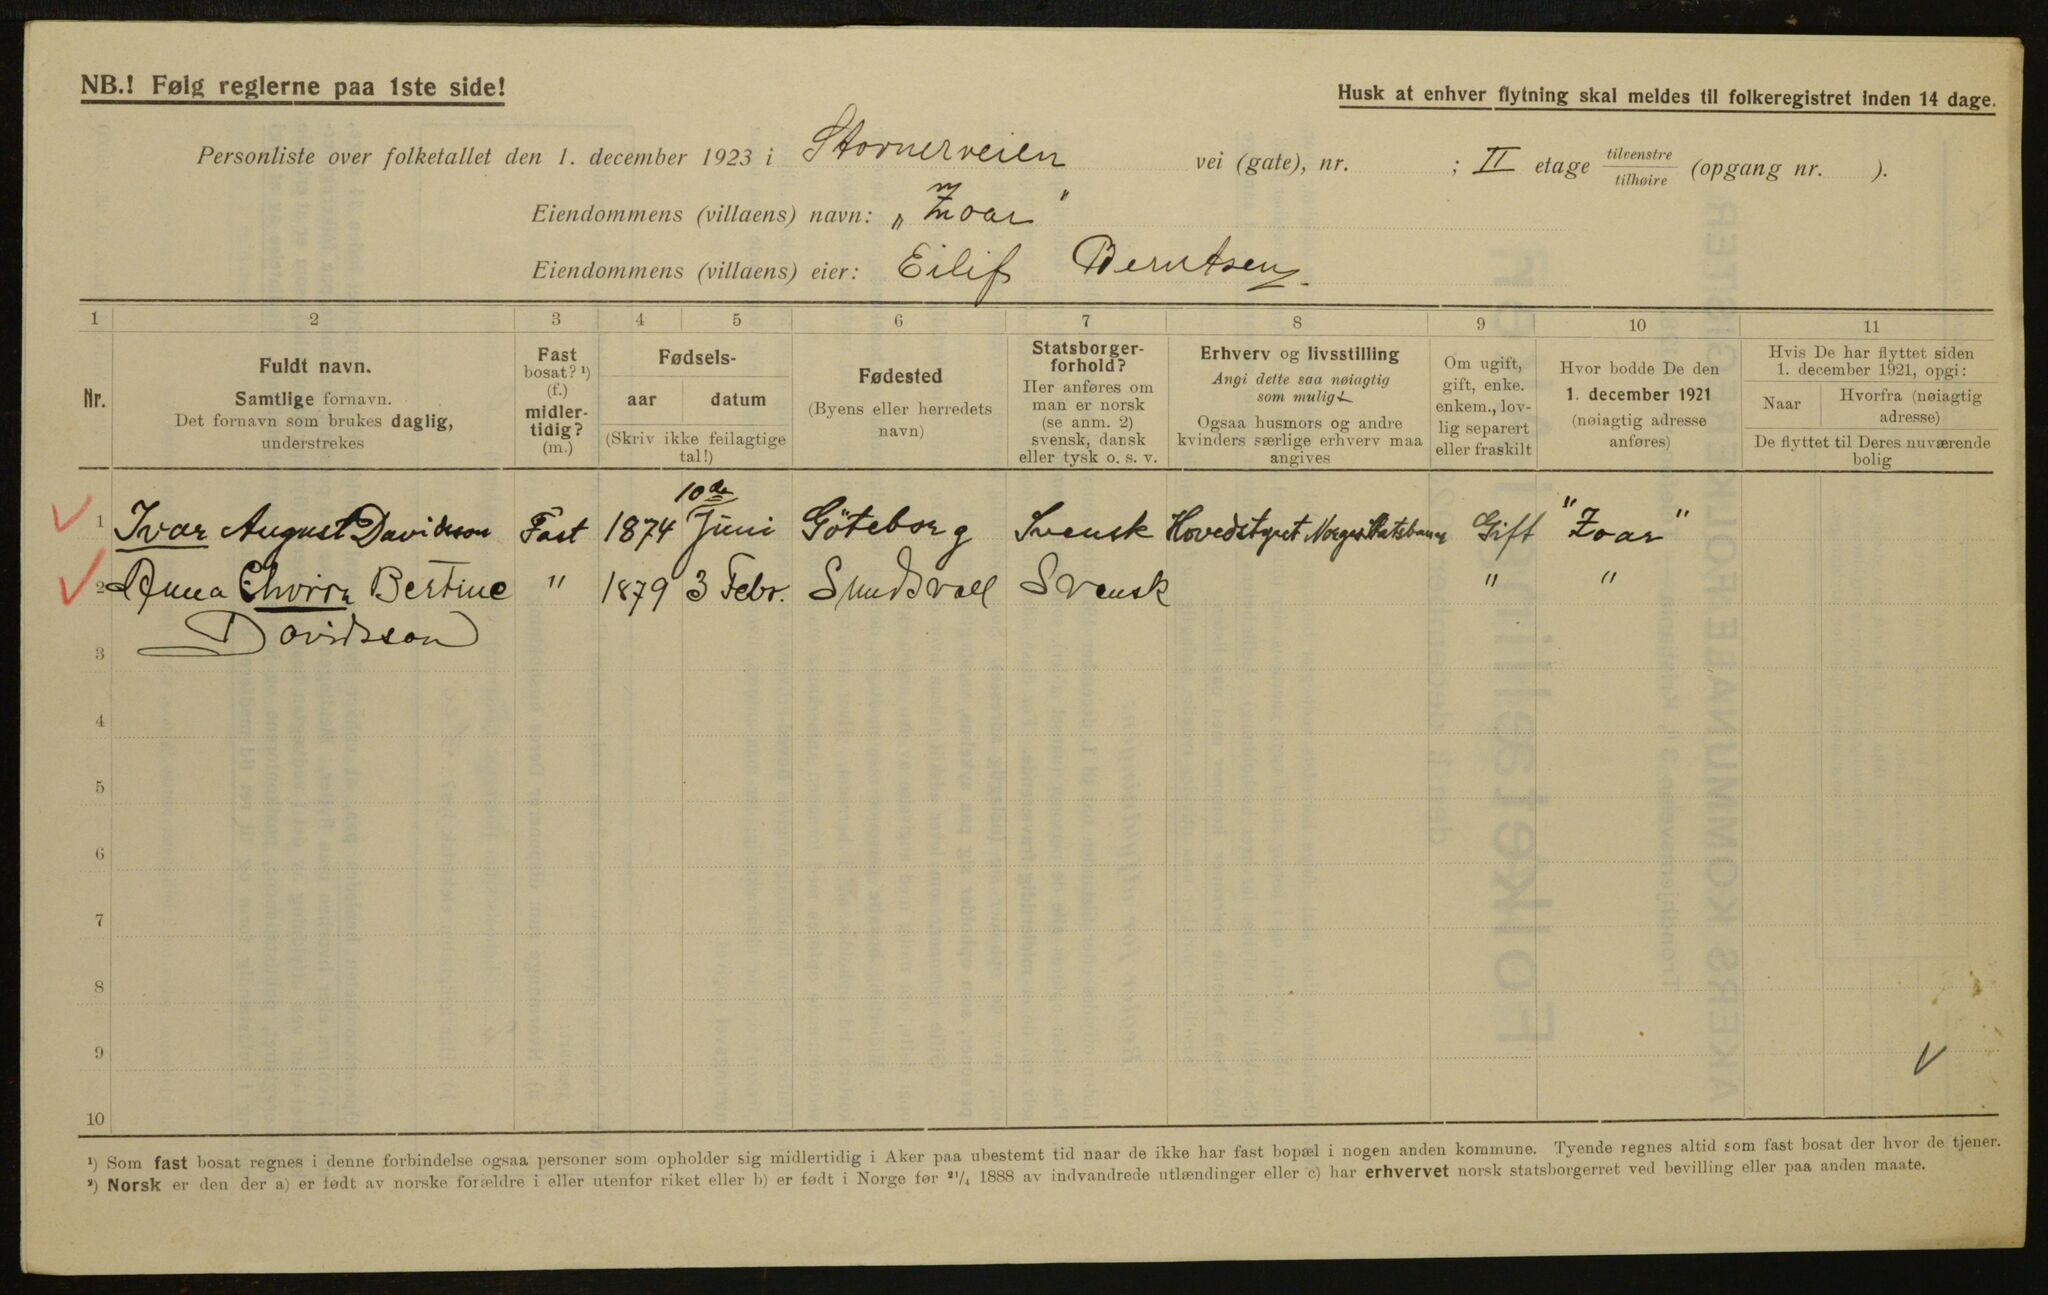 NB.! Følg reglerne paa 1ste side!
Husk at enhver flytning skal meldes til folkeregistret inden 14 dage.
Personliste over folketallet den 1. december 1923 i Stovnerveien vei (gate), nr. ; II etage tilvenstre/tilhøire (opgang nr. ).
Eiendommens (villaens) navn: „Zoar"
Eiendommens (villaens) eier: Eilif Berntsen.
1 2 3 4 5 6 7 8 9 10 11
Nr.
Fuldt navn.
Samtlige fornavn.
Det fornavn som brukes daglig,
understrekes
Fast
bosat? ¹)
(f.)
midler-
tidig?
(m.)
Fødsels-
aar datum
(Skriv ikke feilagtige
tal!)
Fødested
(Byens eller herredets
navn)
Statsborger-
forhold?
Her anføres om
man er norsk
(se anm. 2)
svensk, dansk
eller tysk o. s. v.
Erhverv og livsstilling
Angi dette saa nøiagtig
som mulig
Ogsaa husmors og andre
kvinders særlige erhverv maa
angives
Om ugift,
gift, enke.
enkem., lov-
lig separert
eller fraskilt
Hvor bodde De den
1. december 1921
(nøiagtig adresse
anføres)
Hvis De har flyttet siden
1. december 1921, opgi:
Naar
Hvorfra (nøiagtig
adresse)
De flyttet til Deres nuværende
bolig
10de
1 Ivar August Davidsson Fast 1874 Juni Göteborg Svensk Hovedstyret Norges Statsbaner Gift "Zoar"
2 Anna Bertine " 1879 3 Febr. Sundsvall Svensk " "
Davidsson
3
4
5
6
7
8
9
10
¹) Som fast bosat regnes i denne forbindelse ogsaa personer som opholder sig midlertidig i Aker paa ubestemt tid naar de ikke har fast bopæl i nogen anden kommune. Tyende regnes altid som fast bosat der hvor de tjener.
²) Norsk er den der a) er født av norske forældre i eller utenfor riket eller b) er født i Norge før 21/4 1888 av indvandrede utlændinger eller c) har erhvervet norsk statsborgerret ved bevilling eller paa anden maate.